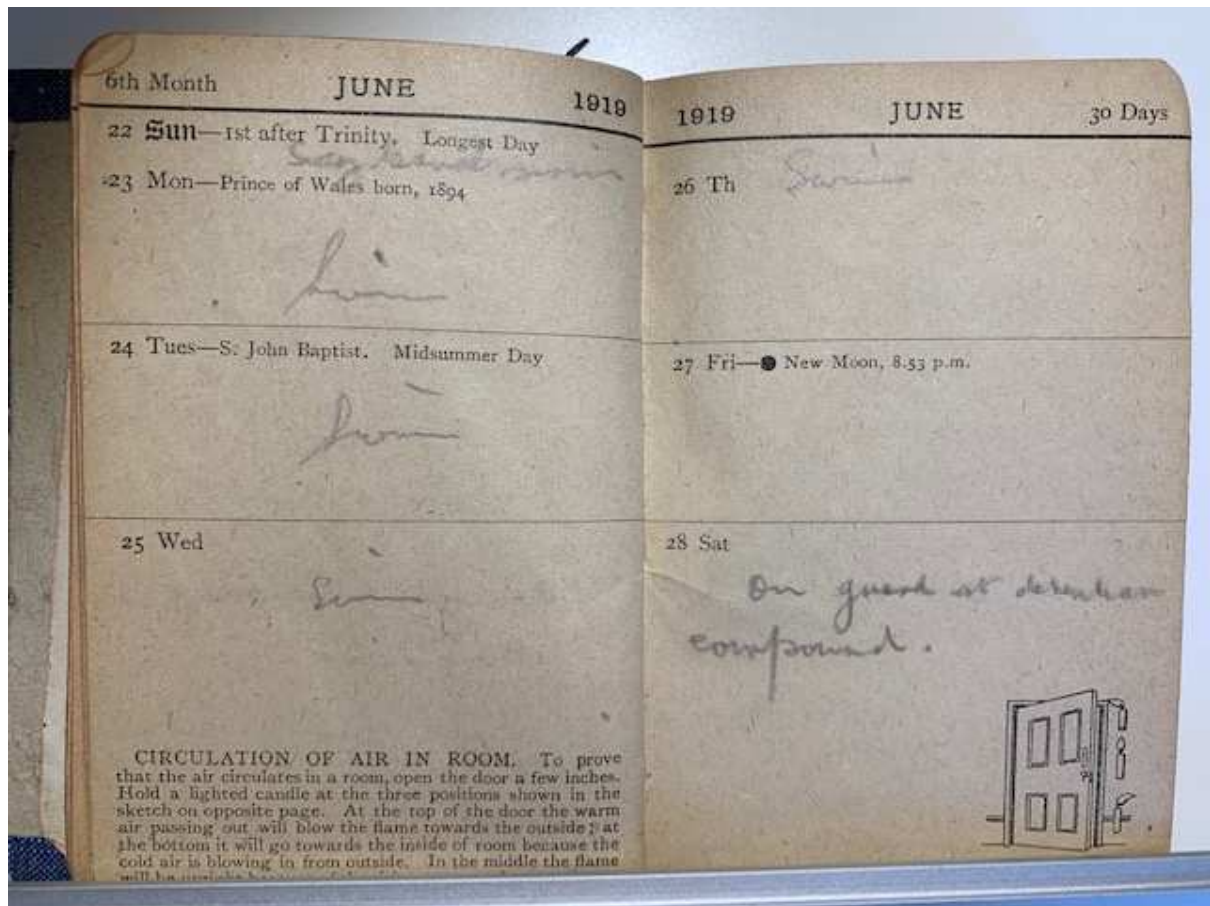 6th Month JUNE 1919
22 Sun—1st after Trinity. Longest Day
23 Mon—Prince of Wales born, 1894
Swim
24 Tues—S. John Baptist. Midsummer Day
Swim
25 Wed
Swim
CIRCULATION OF AIR IN ROOM. To prove
that the air circulates in a room, open the door a few inches.
Hold a lighted candle at the three positions shown in the
sketch on opposite page. At the top of the door the warm
air passing out will blow the flame towards the outside; at
the bottom it will go towards the inside of room because the
cold air is blowing in from outside. In the middle the flame
will be
1919 JUNE 30 Days
26 Th Swim
27 Fri—● New Moon, 8.53 p.m.
28 Sat
On guard at
compound.